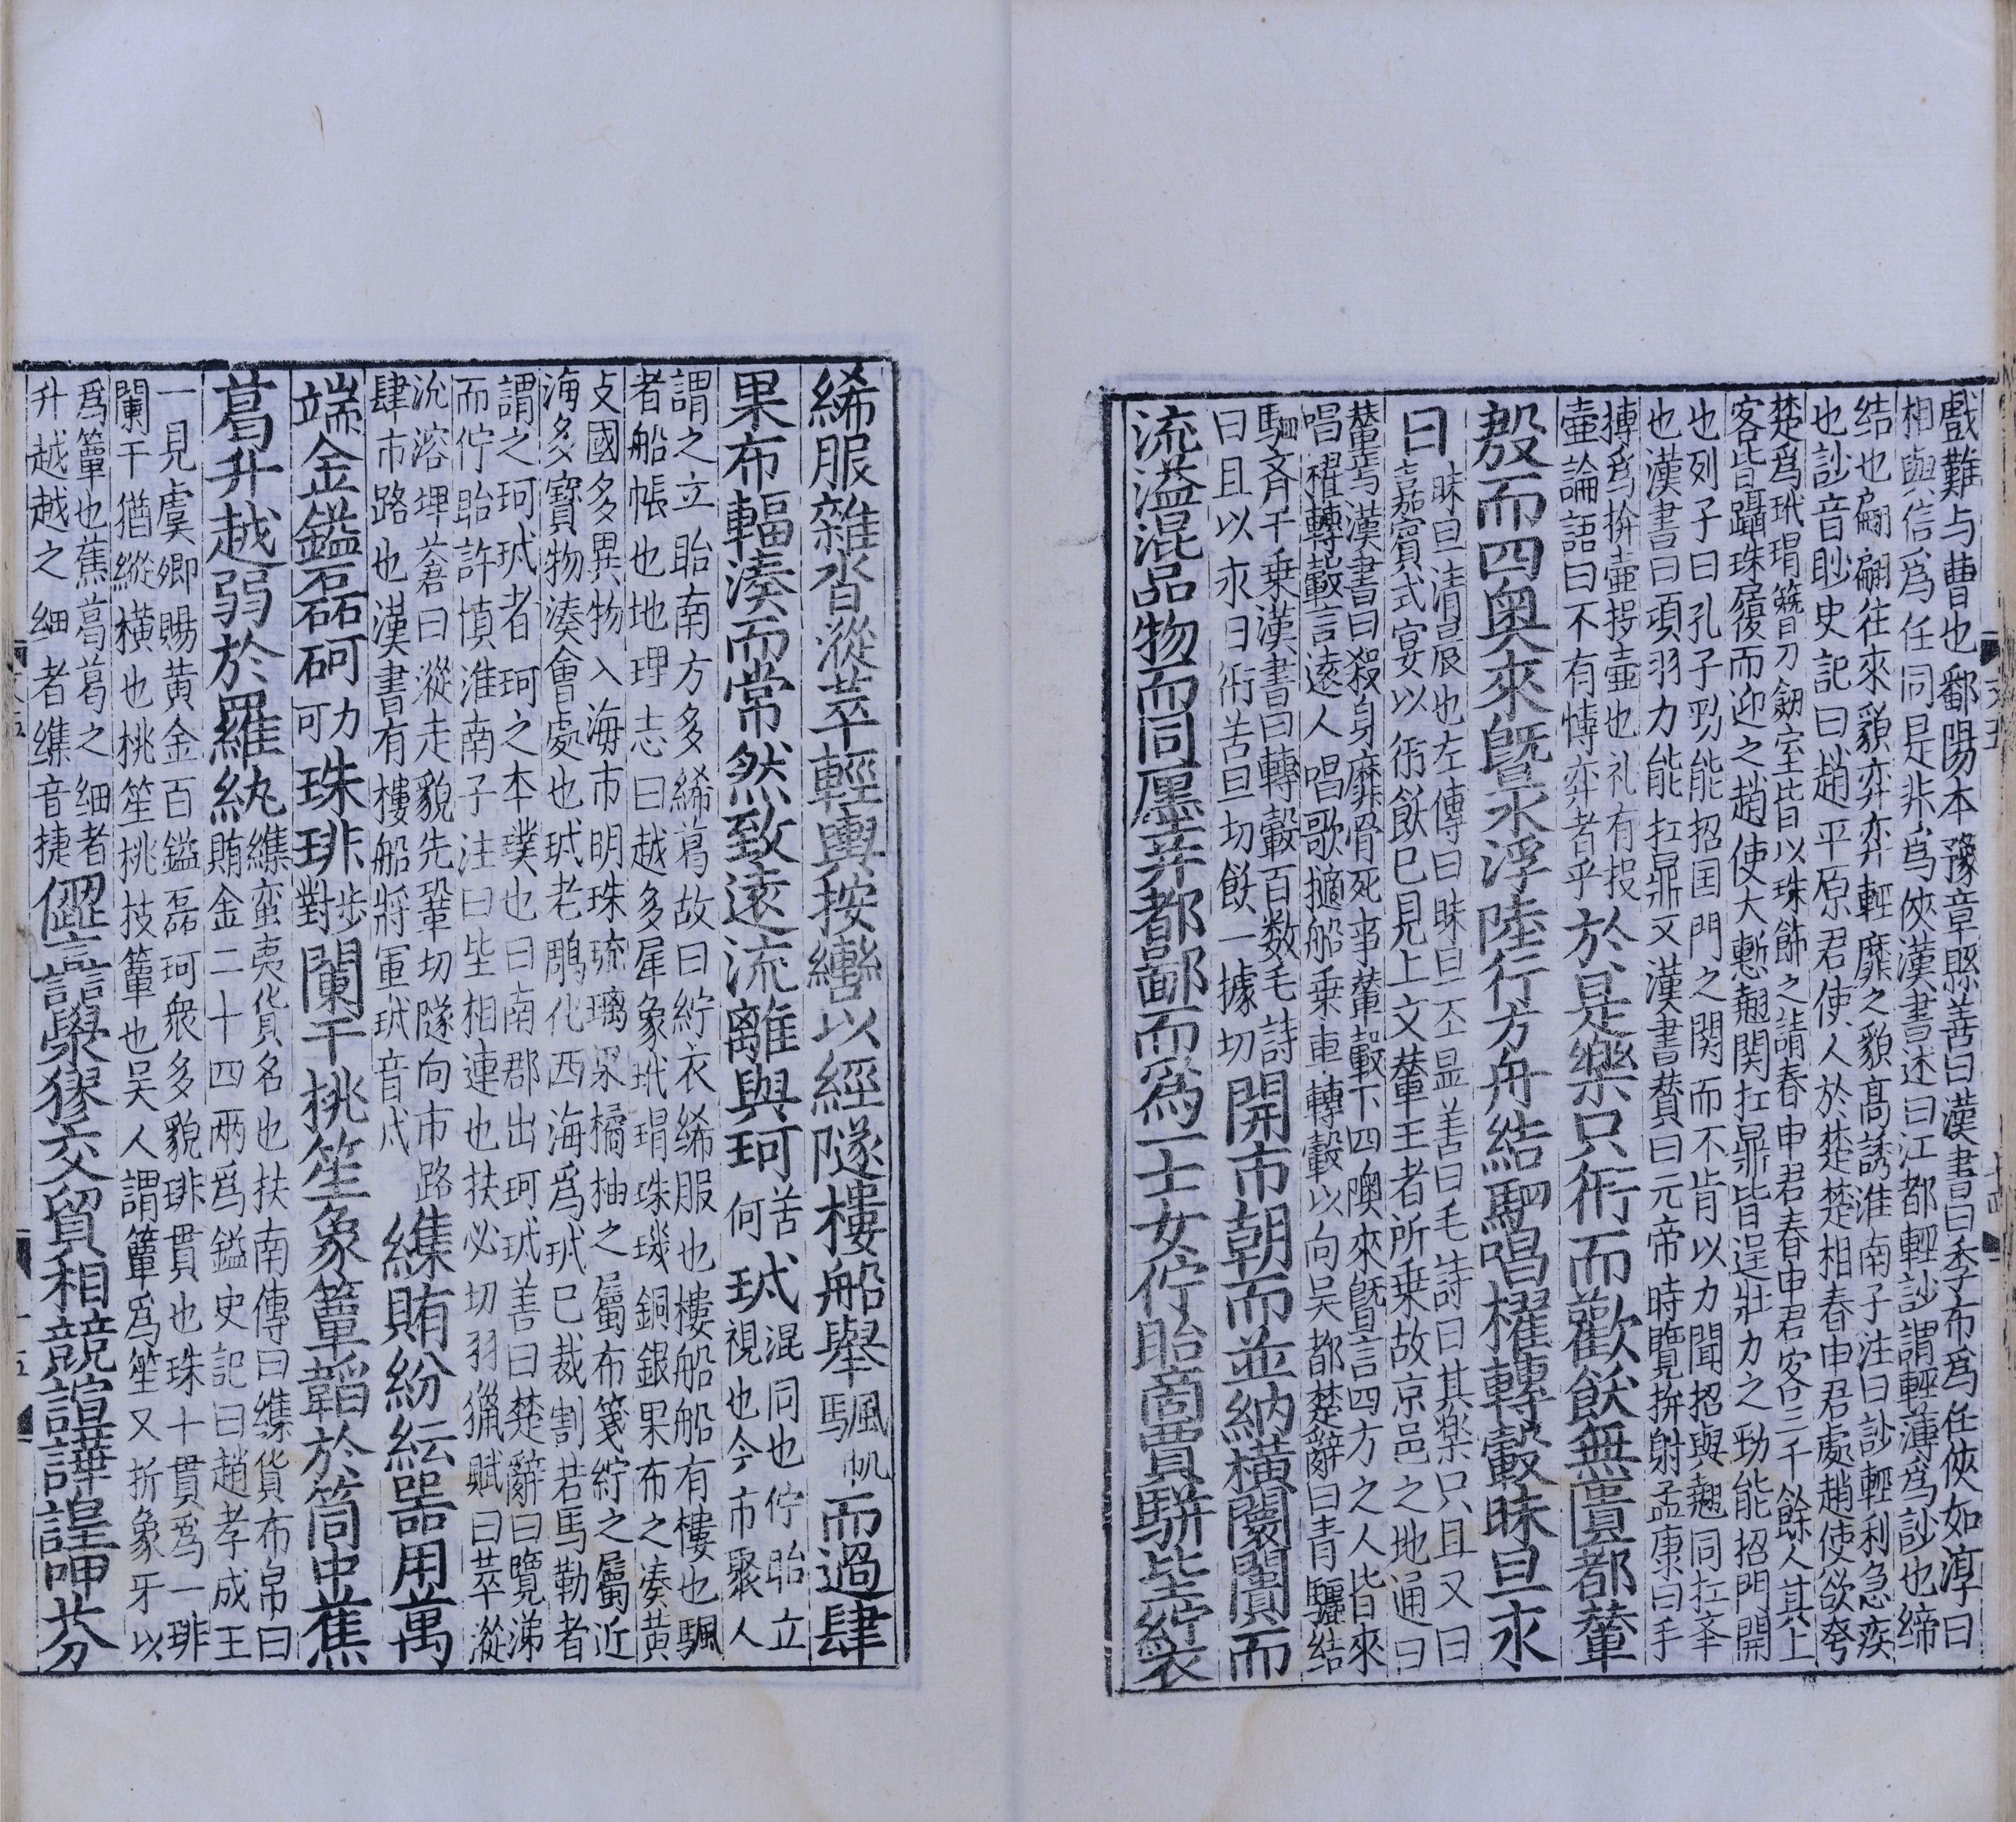 戲難与曹也鄱陽本豫章縣善曰漢書曰季布爲任俠如淳曰
相與信爲任同是非爲俠漢書述曰江都輕訬謂輕薄爲訬也締
结也翩翩往來貌弈弈輕靡之貌高誘淮南子注曰訬輕利急疾
也訬音眇史記曰趙平原君使人於楚楚相春申君處趙使欲夸
楚爲玳瑁簪刀劔室皆以珠飾之請春申君春申君客三千餘人其上
客皆躡珠履而迎之趙使大慙翹関扛鼎皆逞壯力之勁能招門開
也列子曰孔子勁能招国門之関而不肯以力聞招與翹同扛举
也漢書曰項羽力能扛鼎又漢書贊曰元帝時覽拚射孟康曰手
搏爲拚壷投壷也礼有投
壷論語曰不有博弈者乎
於是樂只衎而歡飫無匱都輦
殷而四奥來暨水浮陸行方舟結駟唱櫂轉轂昧旦永
日
昧旦清晨也左傳曰昧旦丕显善曰毛詩曰其樂只且又曰
嘉賓式宴以衎飫已見上文輦王者所乗故京邑之地通曰
輦焉漢書曰殺身靡骨死事輦轂下四隩來暨言四方之人皆來
唱櫂轉轂言逺人唱歌擿船乗車轉轂以向吴都楚辭曰青驪结
駟齐千乗漢書曰轉轂百数毛詩
曰且以永日衎苦旦切飫一據切
開市朝而並納橫闤闠而
流溢混品物而同廛并都鄙而爲一士女佇眙啇賈駢坒紵衣
絺服雜沓漎萃輕輿按轡以經隧樓船舉颿帆而過肆
果布輻湊而常然致逺流離與珂
苦
何
珬
混同也佇眙立
視也今市聚人
謂之立眙南方多絺葛故曰紵衣絺服也樓船船有樓也颿
者船帳也地理志曰越多犀象玳瑁珠璣銅銀果布之凑黄
支國多異物入海市明珠琉璃果橘柚之屬布箋紵之屬近
海多寶物凑會處也珬老鵰化西海爲珬已裁割若馬勒者
謂之珂珬者珂之本璞也曰南郡出珂珬善曰楚辭曰覽涕
而佇眙許慎淮南子注曰坒相連也扶必切羽獵賦曰萃漎
沇溶埋蒼曰漎走貌先鞏切隧向市路
肆市路也漢書有樓船將軍珬音戌
繏賄紛紜器用萬
端金鎰磊砢
力
可
珠琲
步
對
闌干桃笙象簟韜於筒中蕉
葛升越弱於羅紈
繏蛮夷货名也扶南傳曰繏货布帛曰
賄金二十四兩爲鎰史記曰趙孝成王
一見虞卿賜黄金百鎰磊砢衆多貌琲貫也珠十貫爲一琲
闌干猶縱横也桃笙桃枝簟也吴人謂簟爲笙又折象牙以
爲簟也蕉葛葛之细者
升越越之细者繏音捷
𠎝譶澩㺒交貿相競諠譁喤呷芬